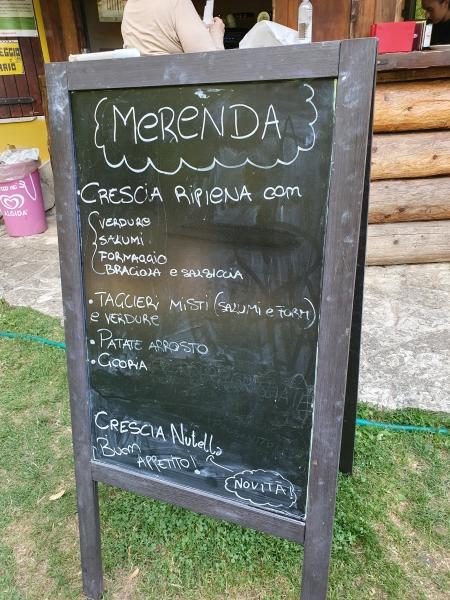 MERENDA
• CRESCIA RIPIENA COM
VERDURE
SALUMI
FORMAGGIO
BRACIOLA E SALSICCIA
• TAGLIERI MISTI (SALUMI E FORM)
E VERDURE
• PATATE ARROSTO
• CICORIA
CRESCIA Nutella
BUOM
APPETITO!
NOVITÀ!
ALGIDA